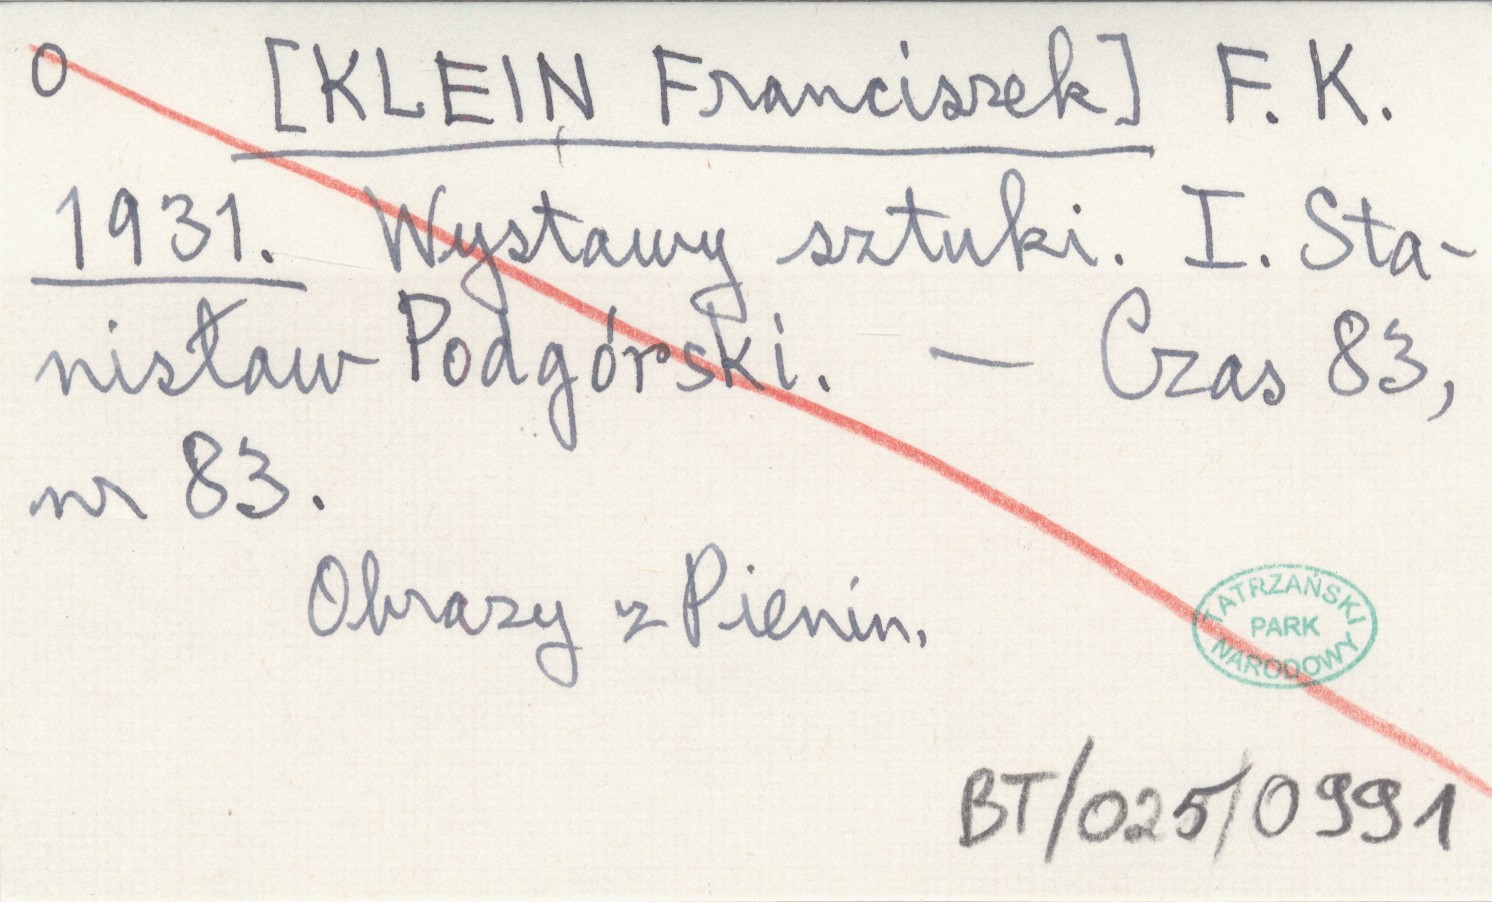 O [KLEIN Franciszek] F. K.
1931. Wystawy sztuki. I. Sta-
nisław Podgórski. — Czas 83,
nr 83.
Obrazy z Pienin.
TATRZAŃSKI
PARK
NARODOWY
BT/025/0991